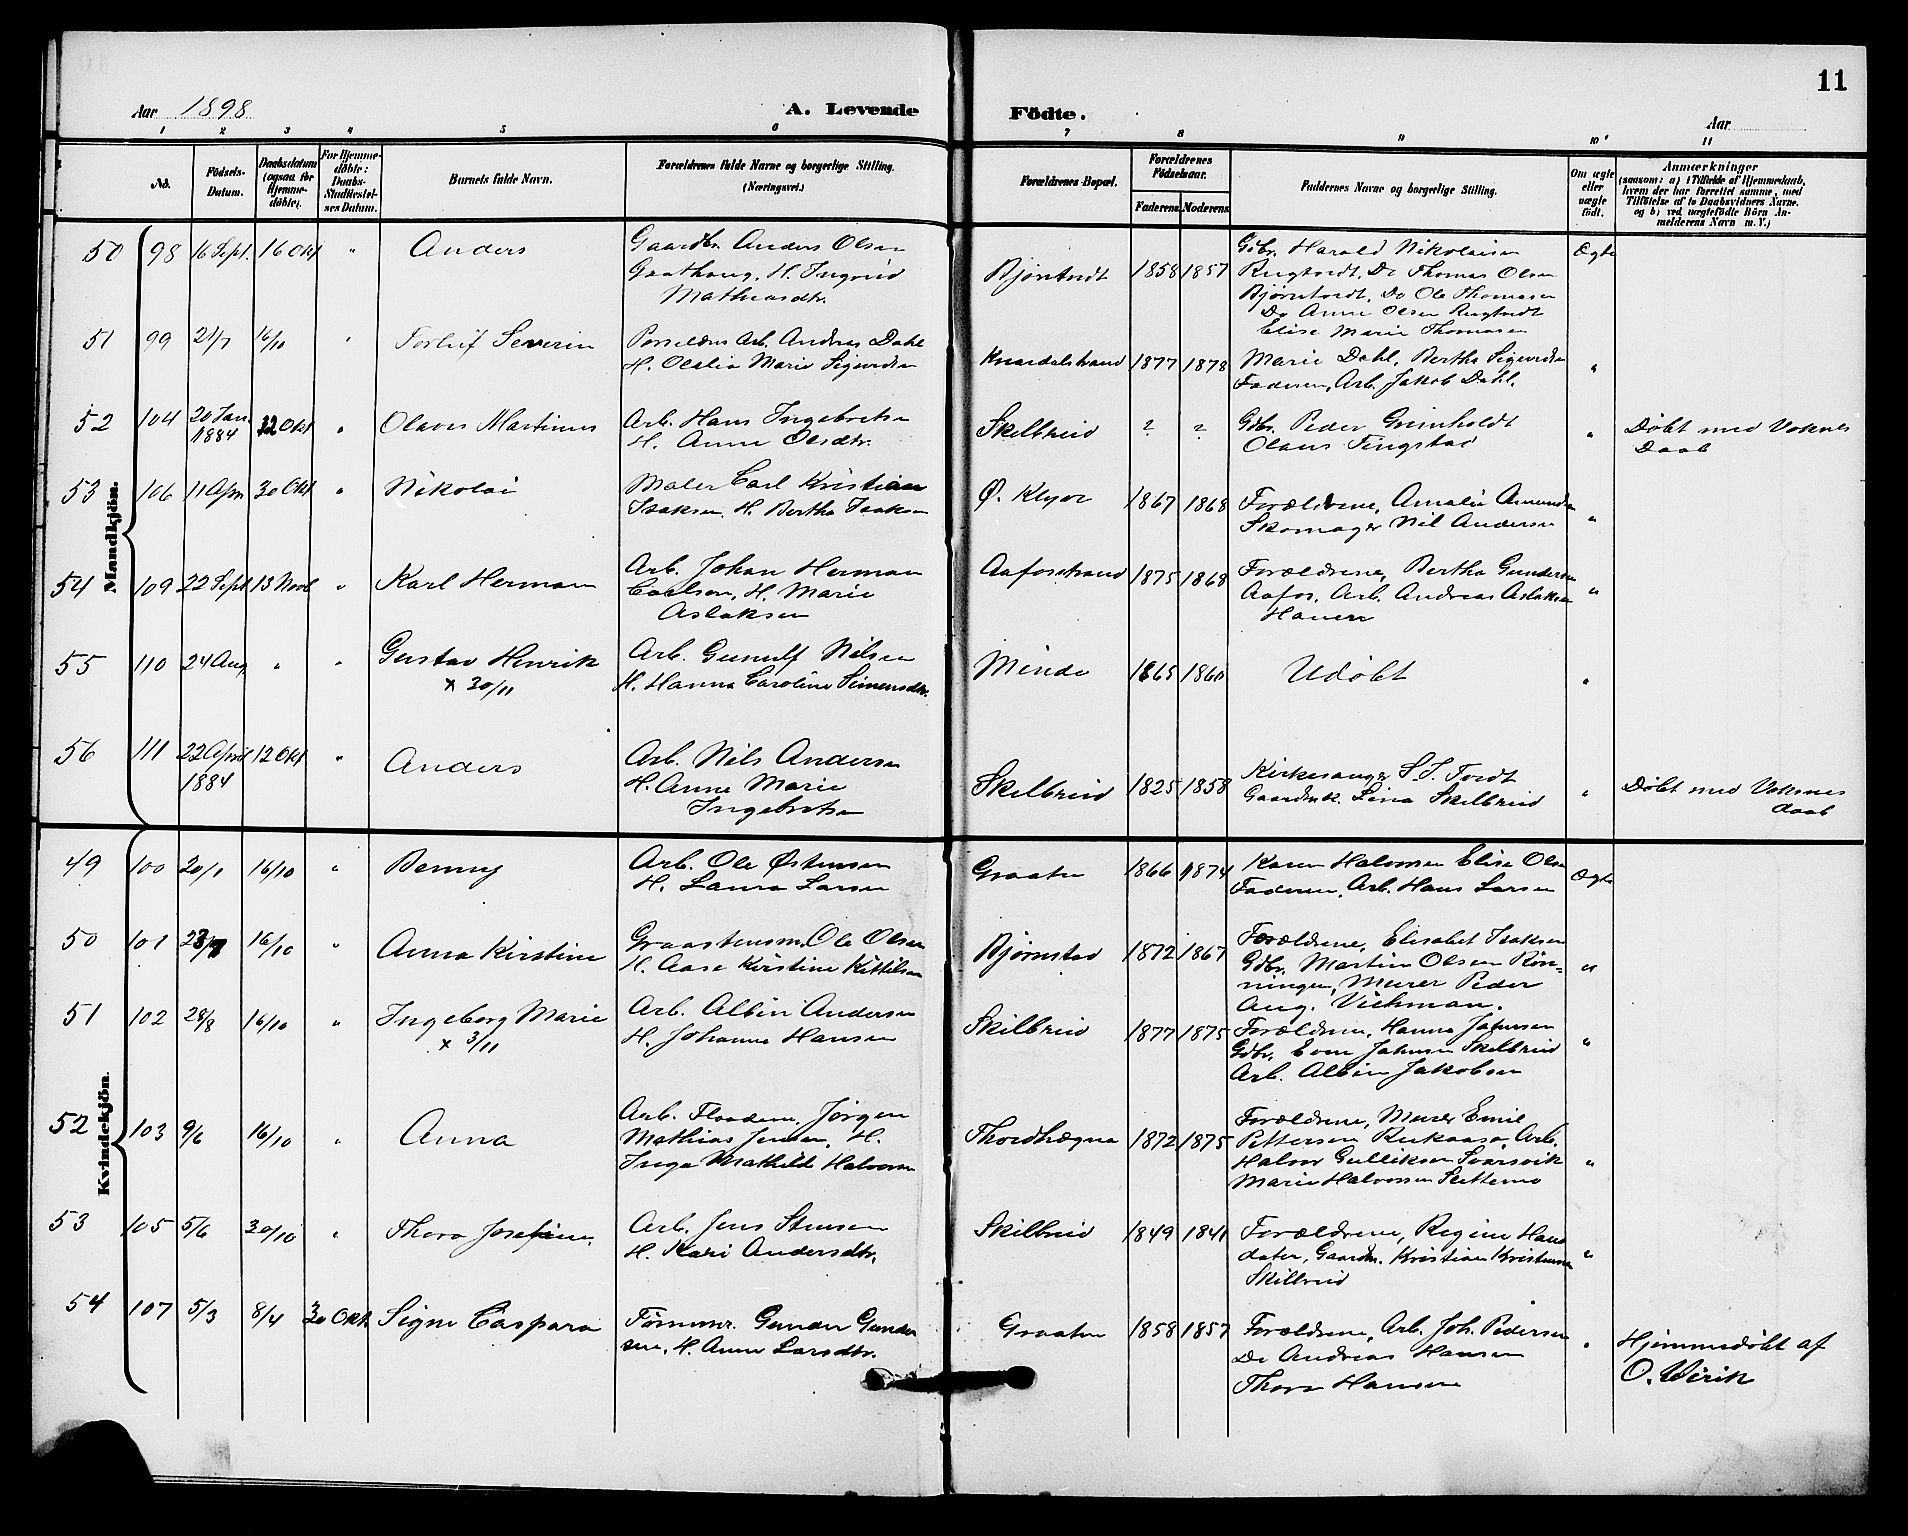 11
Aar 1898
A. Levende
Födte.
Aar
1 2 3 4 5 6 7 8 9 10 11
No.
Födsels-Datum.
Daabsdatum (ogsaa for Hjemmedöbte).
For Hjemmedöbte: Daabs-Stadfæstelses Datum.
Barnets fulde Navn.
Forældrenes fulde Navne og borgerlige Stilling. (Næringsvei.)
Forældrenes Bopæl.
Forældrenes Födselsaar.
Faderens
Moderens
Faddernes Navne og borgerlige Stilling.
Om ægte eller uægte födt.
Anmærkninger
(saasom: a) i Tilfælde af Hjemmedaab, hvem der har forrettet samme, med Tilföielse af to Daabsvidners Navne. og b) ved uægtefödte Börn Anmelderens Navn m. V.)
Mandkjön.
50 98 16 Sept. 16 Okt " Anders
Gaardbr. Anders Olsen
Gaathaug, H. Ingerid
Mathiasdtr.
Bjørntvedt 1858 1857
Gdbr. Harald Nikolaisen
Rugtvedt, Do Thomas Olsen
Bjørntvedt, Do Ole Thomasen
Do Anne Olsen Rugtvedt
Elise Marie Thomasen
Ægte
51 99 21/7 16/10 " Torleif Severin
Porselæns Arb. Andreas Dahl
H. Olalia Marie Sigurdsen
Knardalstrand 1877 1878
Marie Dahl, Bertha Sigurdsen
Faderen, Arb. Jakob Dahl.
"
52 104 20 Jan. 1884 22 Okt " Olavus Martinus
Arb. Hans Ingebretsen
H. Anne Olsdtr.
Skilbreid ? ?
Gdbr. Peder Grinholdt
Olaus Tingstad
"
Døbt med Voknes
Daab
53 106 11 April 30 Okt " Nikolai
Maler Carl Kristian
Isaksen, H. Bertha Isaksen
Ø. Klyve 1867 1868
Forældrene, Amalie Amundsen
Skomager Nil Andersen
"
54 109 22 Sept 13 Novb " Karl Herman
Arb. Johan Herman
Carlsen, H. Marie
Aslaksen
Aafosstrand 1875 1868
Forældrene, Bertha Gundersen
Aafos, Arb. Andreas Aslaksen
Hauen
"
55 110 24 Aug " " Gustav Henrik
x 30/11
Arb. Gunulf Nilsen
H. Hanna Caroline Simensdtr.
Minde 1865 1860
Udøbt
"
56 111 22 April 1884 12 Okt " Anders
Arb. Nils Andersen
H. Anne Marie
Ingebretsen
Skilbreid 1825 1858
Kirkesanger S. S. Tvedt
Gaardmk. Lina Skilbreid
"
Døbt med Voksnes
daab
Kvindekjön.
49 100 20/1 16/10 " Benny
Arb. Ole Østensen
H. Laura Larsen
Graaten 1866 1874
Karen Halvorsen Elise Olsen
Faderen, Arb. Hans Larsen
Ægte
50 101 23/7 16/10 " Anna Kirstine
Graastensm. Ole Olsen
H. Aase Kirstine Kittilsen
Bjørnstad 1872 1867
Forældrene, Elisabet Isaksen
Gdbr. Martin Olsen Røn-
ningen, Murer Peder
Aug. Vichman.
"
51 102 28/8 16/10 " Ingeborg Marie
x 3/11
Arb. Albin Andersen
H. Johanna Hansen
Skilbreid 1877 1875
Forældrene, Hanna Johnsen
Gdbr. Even Johnsen Skilbreid
Arb. Albin Jakobsen
"
52 103 9/6 16/10 " Anna
Arb. Floodene, Jörgen
Mathias Jensen, H.
Inga Mathilde Halvorsen
Thordhægna 1872 1875
Forældrene, Murer Emil
Pettersen Rukaasa, Arb.
Halvor Gulliksen Svarsvik
Marie Halvorsen Slettene
"
53 105 5/6 30/10 " Thora Josefine.
Arb. Jens Stensen
H. Kari Andersdtr.
Skilbreid 1849 1841
Forældrene, Regine Hans
datter, Gaardm. Kristian Kristensen
Skilbreid
"
54 107 5/3 8/4 30 Okt. Signe Caspara
Tømmer. Gunder Gunder
sen, H. Anne Larsdtr.
Graaten 1858 1857
Forældrene, Arb. Joh. Pedersen
Do Andreas Hansen
Thora Hansen
"
Hjemmedøbt af
O. Virik